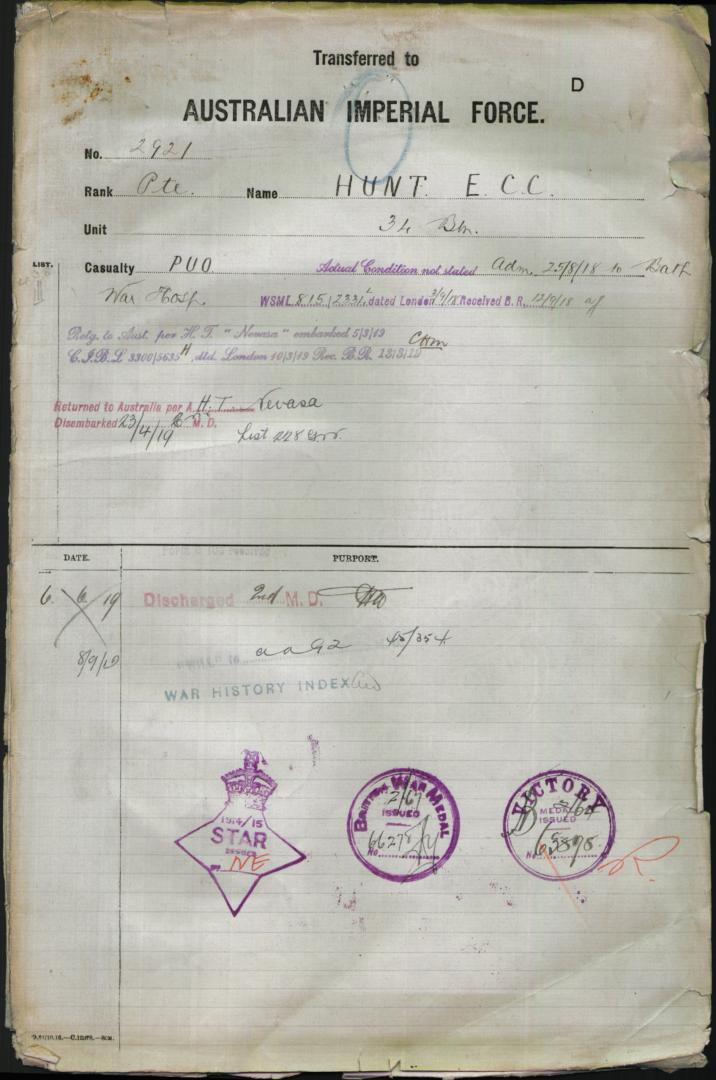 Transferred to
D
AUSTRALIAN IMPERIAL FORCE.
No. 2921
Rank Pte. Name HUNT. E.C.C.
Unit 34 Bn.
LIST.
Casualty PUO. Actual Condition not stated Adm. 25/8/18 to Bath
War Hosp. WSML 815/2331 dated London 2/9/18 Received B.R. 12/9/18
Retg. to Aust. per H.T. "Nevasa" embarked 5/3/19
C.I.B.L 3300/5635 H, dtd. London 10/3/19 Rec. B.R. 13/3/19
Returned to Australia per A.H.T. Nevasa
Disembarked 23/4/19 2 M.D.
List 228
DATE. PURPORT.
6. 6/19 Discharged 2nd M.D.
8/9/19 45/354
WAR HISTORY INDEX
1914/15
STAR
ISSUED
NE
BRITISH WAR MEDAL
2/67
ISSUED
No. 66278
VICTORY
MEDAL
ISSUED
No.
R.